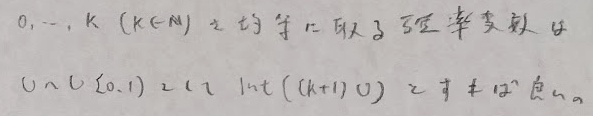 0, …, K (K∈ℕ) を均等に取る確率変数は
U~U[0.1) として Int((k+1)U) とすれば良い。